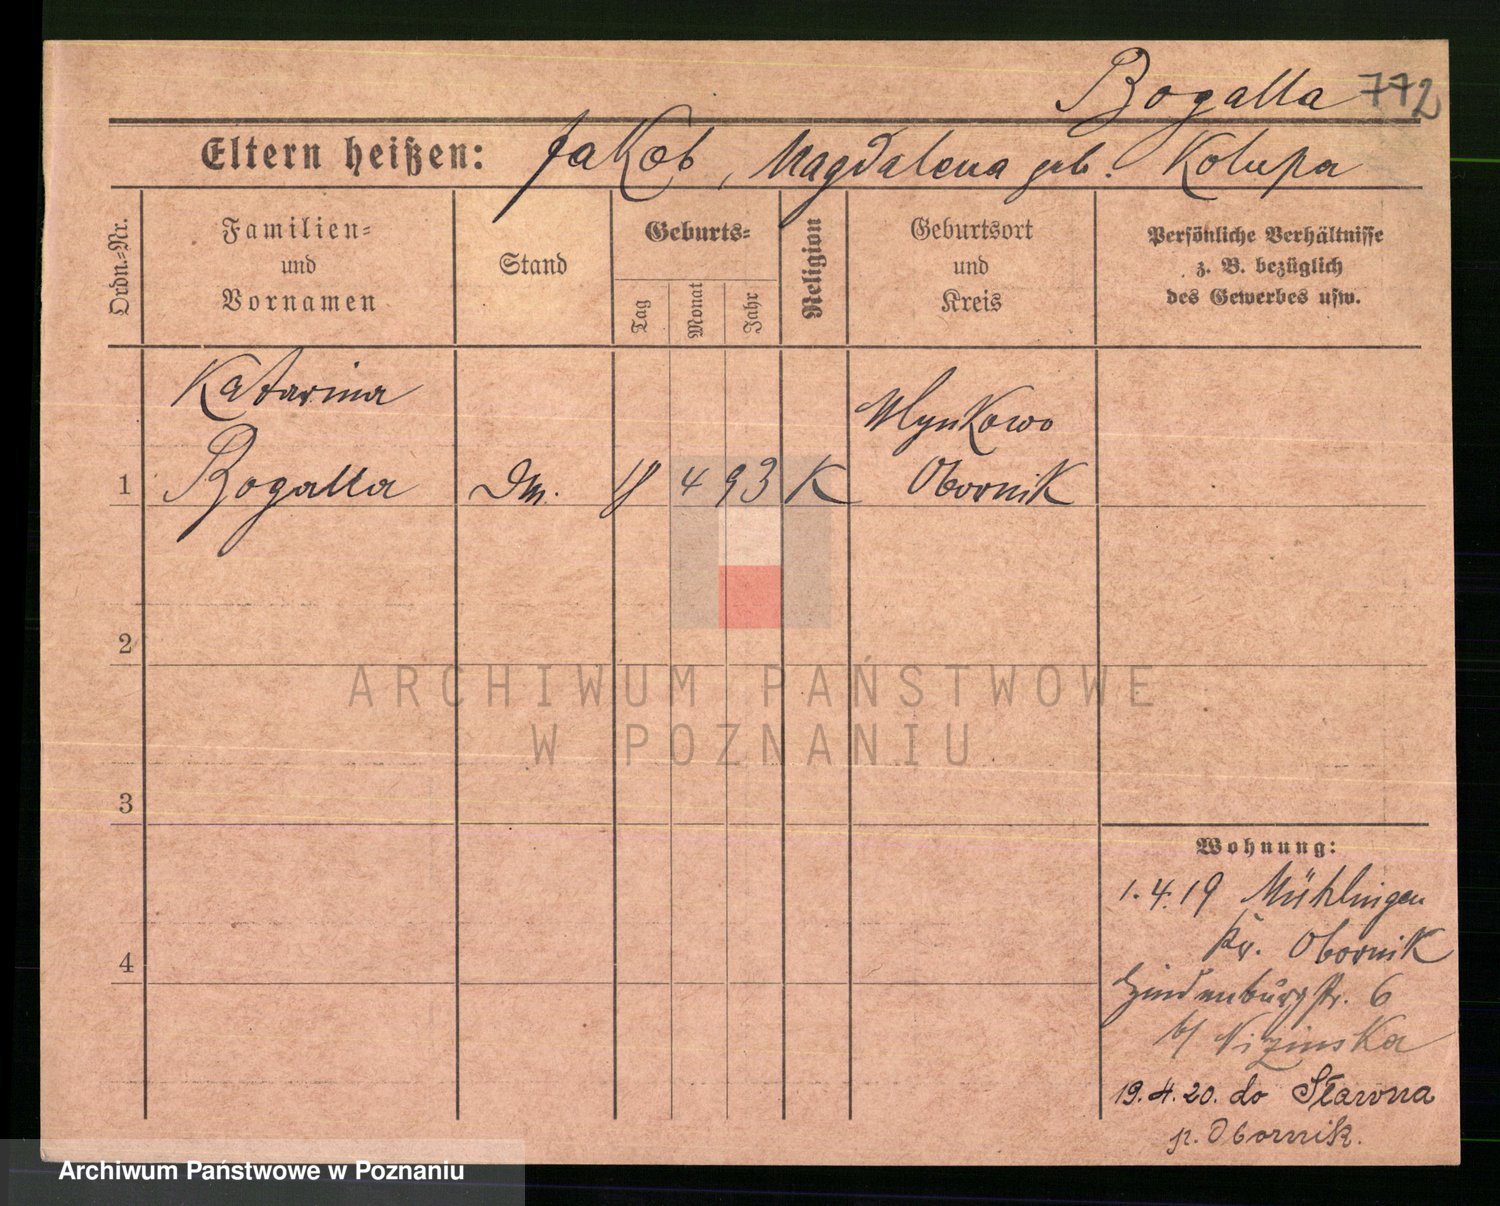 Bogalla 772
Eltern heißen: Jakob, Magdalena geb. Kolupa
Ordn.-Nr.
Familien-
und
Vornamen
Stand
Geburts-
Tag
Monat
Jahr
Religion
Geburtsort
und
Kreis
Persönliche Verhältnisse
z. B. bezüglich
des Gewerbes usw.
Katarina
Wlynkowo
1 Bogalla Dm. 18 4 93 K Obornik
2
3
4
Wohnung:
1.4.19 Mühlingen
Kr. Obornik
Hindenburgstr. 6
b/ Nizinska
19.4.20. do Sławna
p. Obornik.
ARCHIWUM PAŃSTWOWE
W POZNANIU
Archiwum Państwowe w Poznaniu